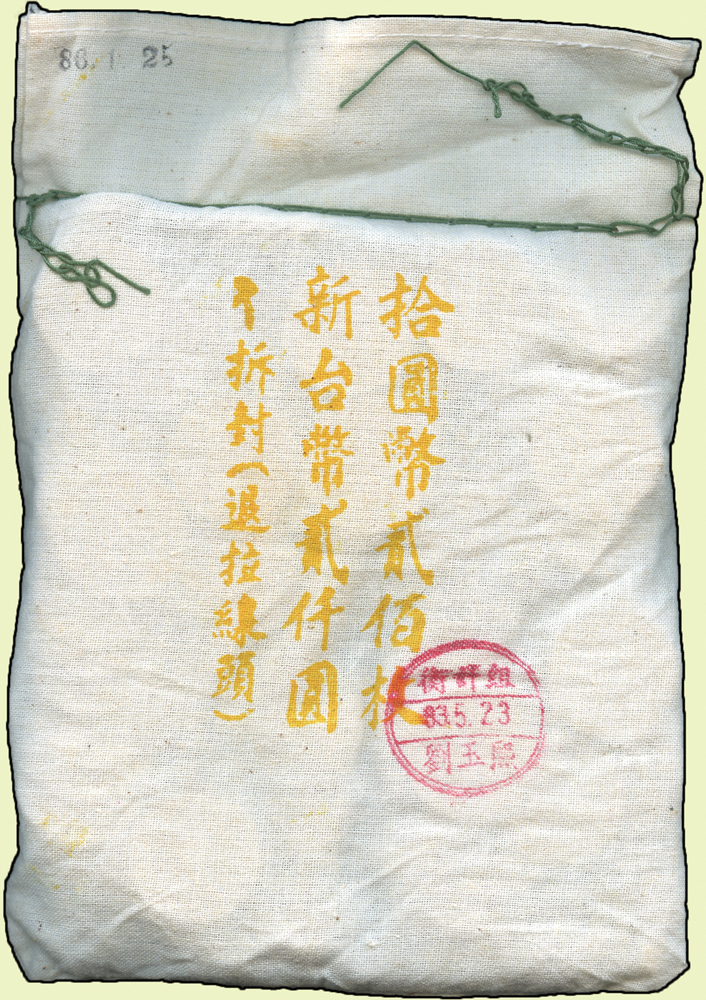 86.1 25
拾圓幣貳佰枚
新台幣貳仟圓
拆封(退拉線頭)
組
83.5.23
劉玉熙